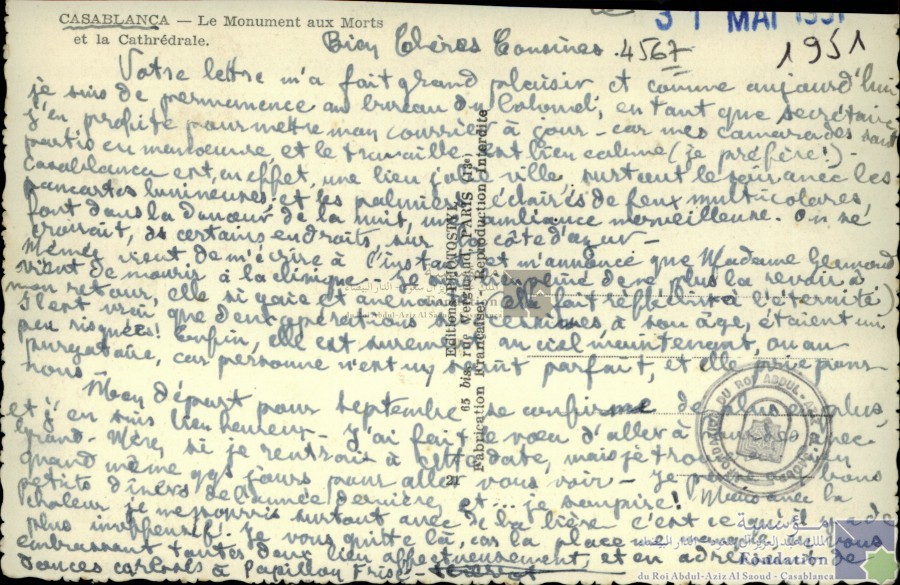 CASABLANCA — Le Monument aux Morts
et la Cathrédrale.
31 MAI 1951
1951
Bien Chères Cousines 4567
Votre lettre m'a fait grand plaisir et comme aujourd'hui
je suis de permanence au bureau du Colonel, en tant que secrétaire
j'en profite pour mettre mon courrier à jour - car mes camarades sont
partis en manoeuvre, et le travaille est bien calme (je préfère!) -
Casablanca est, en effet, une bien jolie ville, surtout le soir avec les
pancartes lumineuses et les palmiers éclairés de feux multicolores
font dans la douceur de la nuit, une ambiance merveilleuse. On se
croirait, à certains endroits, sur la côte d'azur -
Mémée vient de m'écrire à l'instant et m'annonce que Madame
vient de mourir à la clinique - de ne plus la revoir à
mon retour, elle si gaie et elle fait réfléchir à l'éternité)
Il est vrai que deux opérations à son âge, étaient un
peu risquées! Enfin, elle est surement au ciel maintenant, ou au
purgatoire, car personne n'est un saint parfait, et elle prie pour
nous
Mon départ pour septembre se confirme de plus en plus,
et j'en suis bien heureux - j'ai fait le voeu d'aller à avec
Grand-Mère, si je rentrais à cette date, mais je
quand même qqs jours pour aller vous voir - je bons
petits dîners de l'année dernière, et... je soupire! Mais avec la
chaleur, je me nourris surtout avec de la bière c'est ce qu'il y a de
plus inoffensif. Je vous quitte là, car la place
embrassant toutes deux bien affectueusement, et en adressant de
douces caresses à Papillon Frisé
Editions PHOTOSTYL
65 bis, rue PARIS (13e)
Fabrication Française - Reproduction Interdite
22
FONDATION DU ROI ABDUL
مؤسسة
الملك عبد العزيز آل سعود - الدار البيضاء
Fondation
du Roi Abdul-Aziz Al Saoud - Casablanca